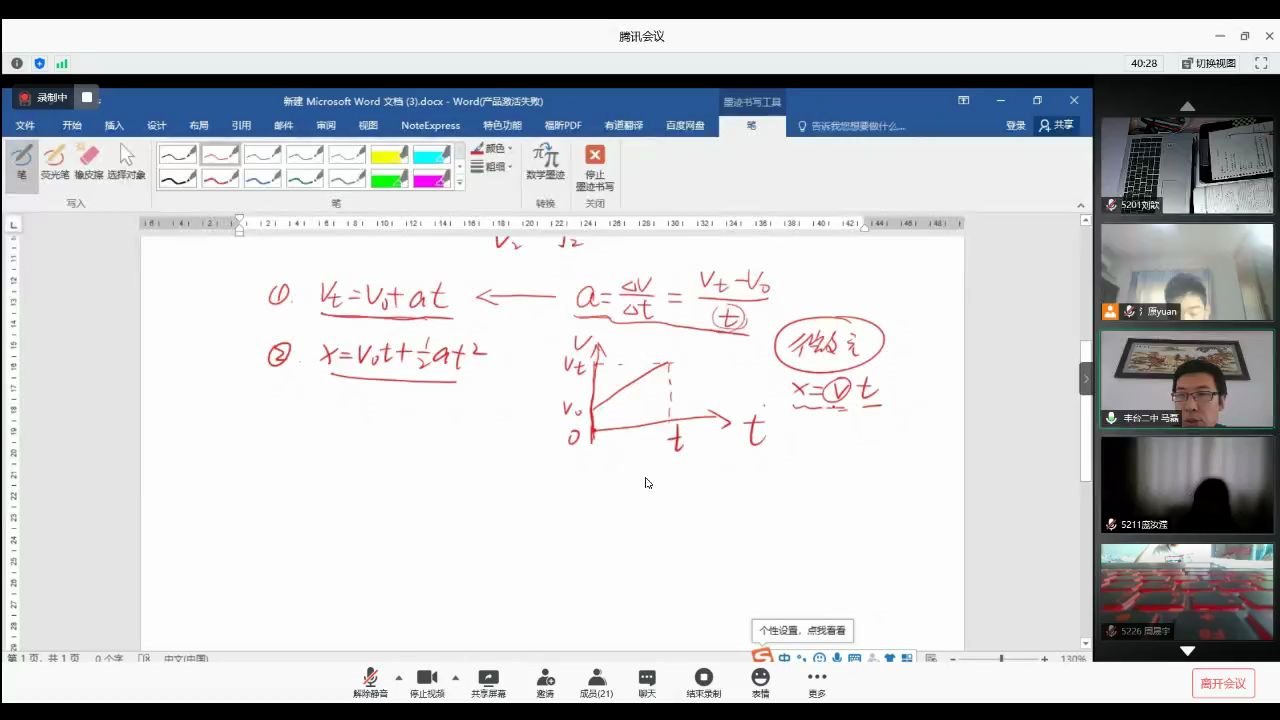 腾讯会议
40:28 切换视图
录制中
新建 Microsoft Word 文档 (3).docx - Word(产品激活失败)
墨迹书写工具
文件 开始 插入 设计 布局 引用 邮件 审阅 视图 NoteExpress 特色功能 福昕PDF 有道翻译 百度网盘 笔 告诉我您想要做什么... 登录 共享
笔 荧光笔 橡皮擦 选择对象
颜色
粗细
数学墨迹
停止
墨迹书写
写入 笔 转换 关闭
V₂
① Vt=V₀+at ← a=ΔV/Δt=Vt-V₀/t
② x=V₀t+½at²
V
Vt
V₀
0 t t
微元
x=vt
5201刘歆
yuan
丰台二中 马磊
5211庞汝滢
5226 周晟宇
个性设置，点我看看
中
第 1 页，共 1 页 0 个字 中文(中国) 130%
解除静音 停止视频 共享屏幕 邀请 成员(21) 聊天 结束录制 表情 更多
离开会议